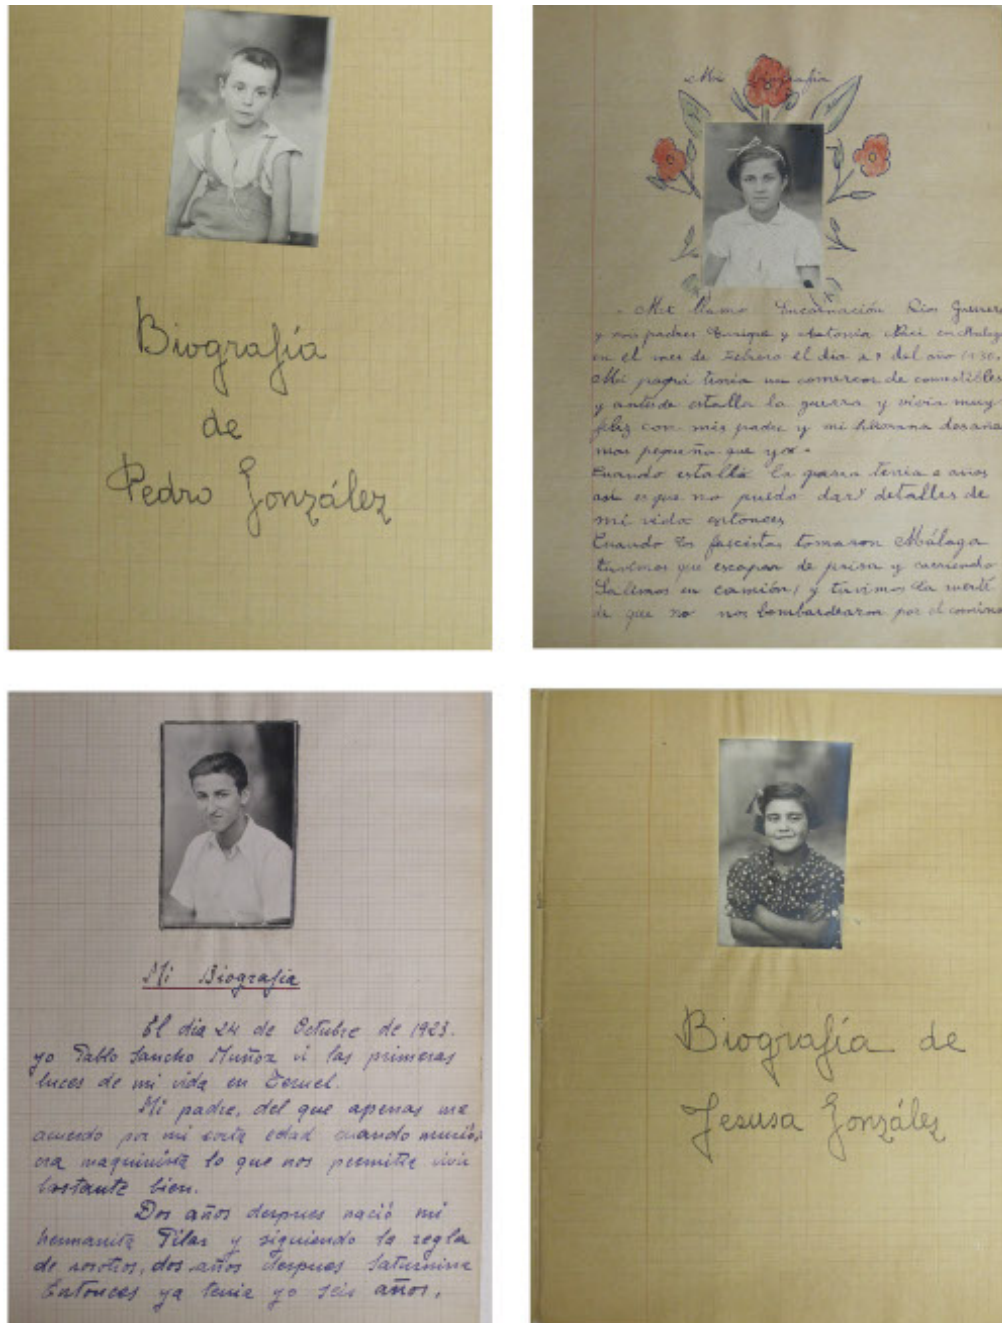 Biografía
de
Pedro González
Mi Biografía
Me llamo Encarnación Rios Guerrero
y mis padres Enrique y Antonia Naci en Malag
en el mes de Febrero el dia 27 del año 1930.
Mi papá tenia un comercio de comestibles
y antes de estalla la guerra y vivia muy
feliz con mis padre y mi hermana dos año
mas pequeña que yo.
Cuando estalló la guerra tenia 6 años
asi es que no puedo dar detalles de
mi vida entonces
Cuando los fascistas tomaron Málaga
tuvimos que escapar de prisa y corriendo
Salimos en camión, y tuvimos la suerte
de que no nos bombardearon por el camino
Mi Biografia
El dia 24 de Octubre de 1923.
yo Pablo Sancho Muñoz vi las primeras
luces de mi vida en Teruel.
Mi padre, del que apenas me
acuerdo por mi corta edad cuando murió,
era maquinista lo que nos permitia vivir
bastante bien.
Dos años despues nació mi
hermanita Pilar y siguiendo la regla
de nosotros, dos años despues Saturnina
Entonces ya tenia yo seis años.
Biografía de
Jesusa González